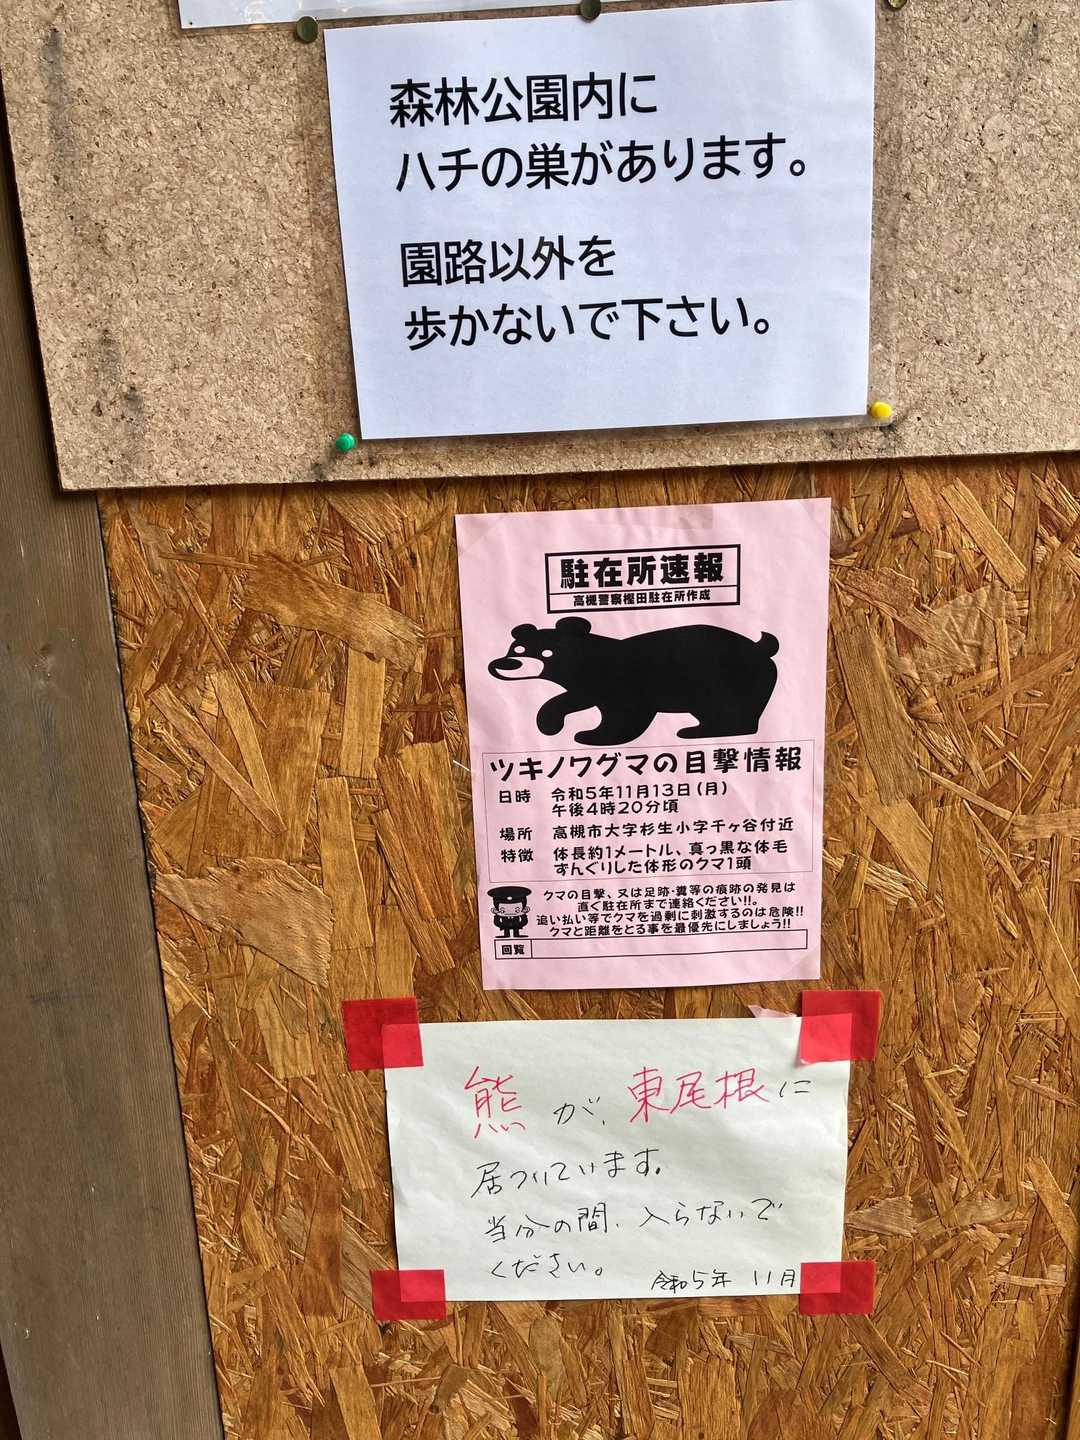 森林公園内に
ハチの巣があります。
園路以外を
歩かないで下さい。
駐在所速報
高槻警察樫田駐在所作成
ツキノワグマの目撃情報
日時 令和5年11月13日(月)
午後4時20分頃
場所 高槻市大字杉生小字千ヶ谷付近
特徴 体長約1メートル、真っ黒な体毛
ずんぐりした体形のクマ1頭
クマの目撃、又は足跡・糞等の痕跡の発見は
直ぐ駐在所まで連絡ください!!。
追い払い等でクマを過剰に刺激するのは危険!!
クマと距離をとる事を最優先にしましょう!!
回覧
熊が、東尾根に
居ついています。
当分の間、入らないで
ください。
令和5年 11月